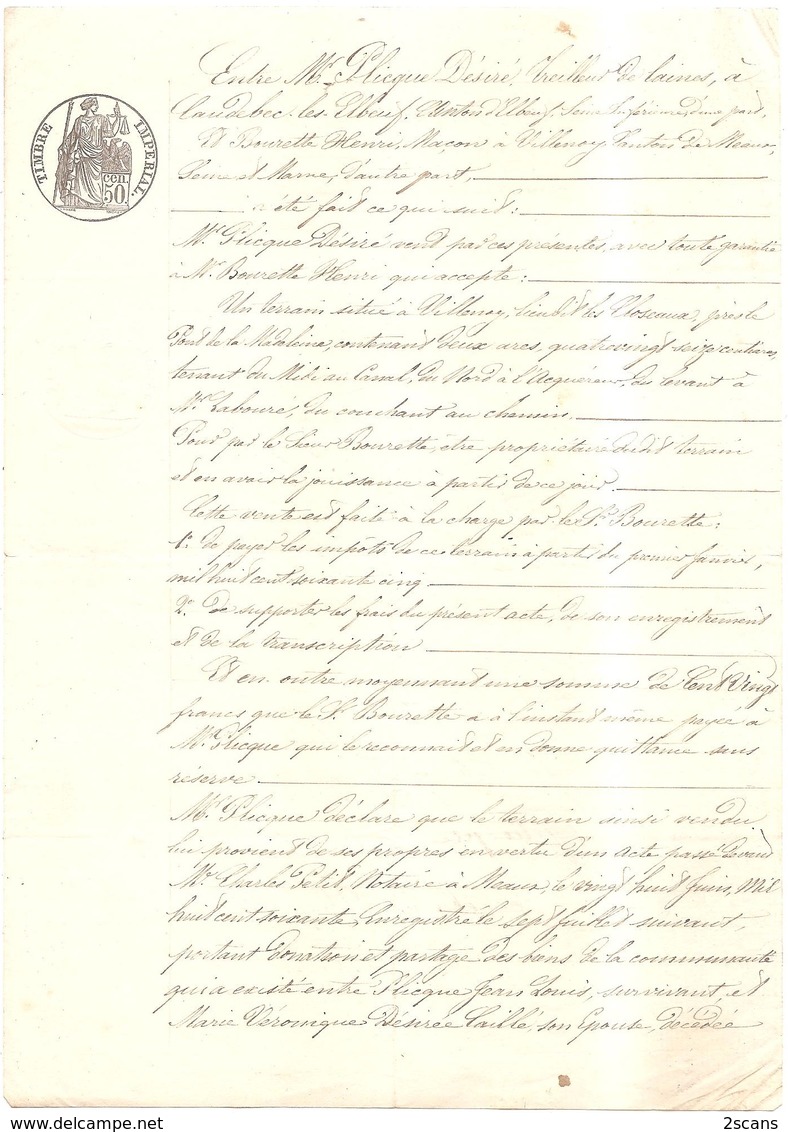 Entre Mr. Plicque Désiré, Treilleur de laines, à
Caudebec-les-Elbeuf, Canton d'Elbeuf, Seine Inférieure, d'une part,
Et Bourette Henri, Maçon à Villenoy Canton de Meaux,
Seine et Marne, d'autre part,
a été fait ce qui suit :
Mr. Plicque Désiré vend par ces présentes, avec toute garantie
à Mr. Bourette Henri qui accepte :
Un terrain situé à Villenoy, lieudit les Closeaux, près le
Pont de la Madeleine, contenant deux ares, quatrevingt seize centiares,
tenant du Midi au Canal, du Nord à l'Acquéreur, du levant à
Mr. Labouré, du couchant au chemin.
Pour par le Sieur Bourette, être propriétaire dudit terrain
et en avoir la jouissance à partir de ce jour.
Cette vente est faite à la charge par le Sr. Bourette :
1º. de payer les impôts de ce terrain à partir du premier Janvier,
mil huit cent soixante cinq
2º. de supporter les frais du présent acte, de son enregistrement
et de la transcription
Et en outre moyennant une somme de Cent Vingt
francs que le Sr. Bourette a à l'instant même payée à
Mr. Plicque qui le reconnait et en donne quittance sans
réserve.
Mr. Plicque déclare que le terrain ainsi vendu
lui provient de ses propres en vertu d'un Acte passé devant
Me. Charles Petit, Notaire à Meaux, le vingt huit Juin, Mil
huit cent soixante, Enregistré le sept Juillet suivant,
portant donation et partage des biens de la communauté
qui a existé entre Plicque Jean Louis, survivant, et
Marie Véronique Désirée Caillé, son Epouse, décédée
TIMBRE IMPERIAL.
cen.
50
© 2scans